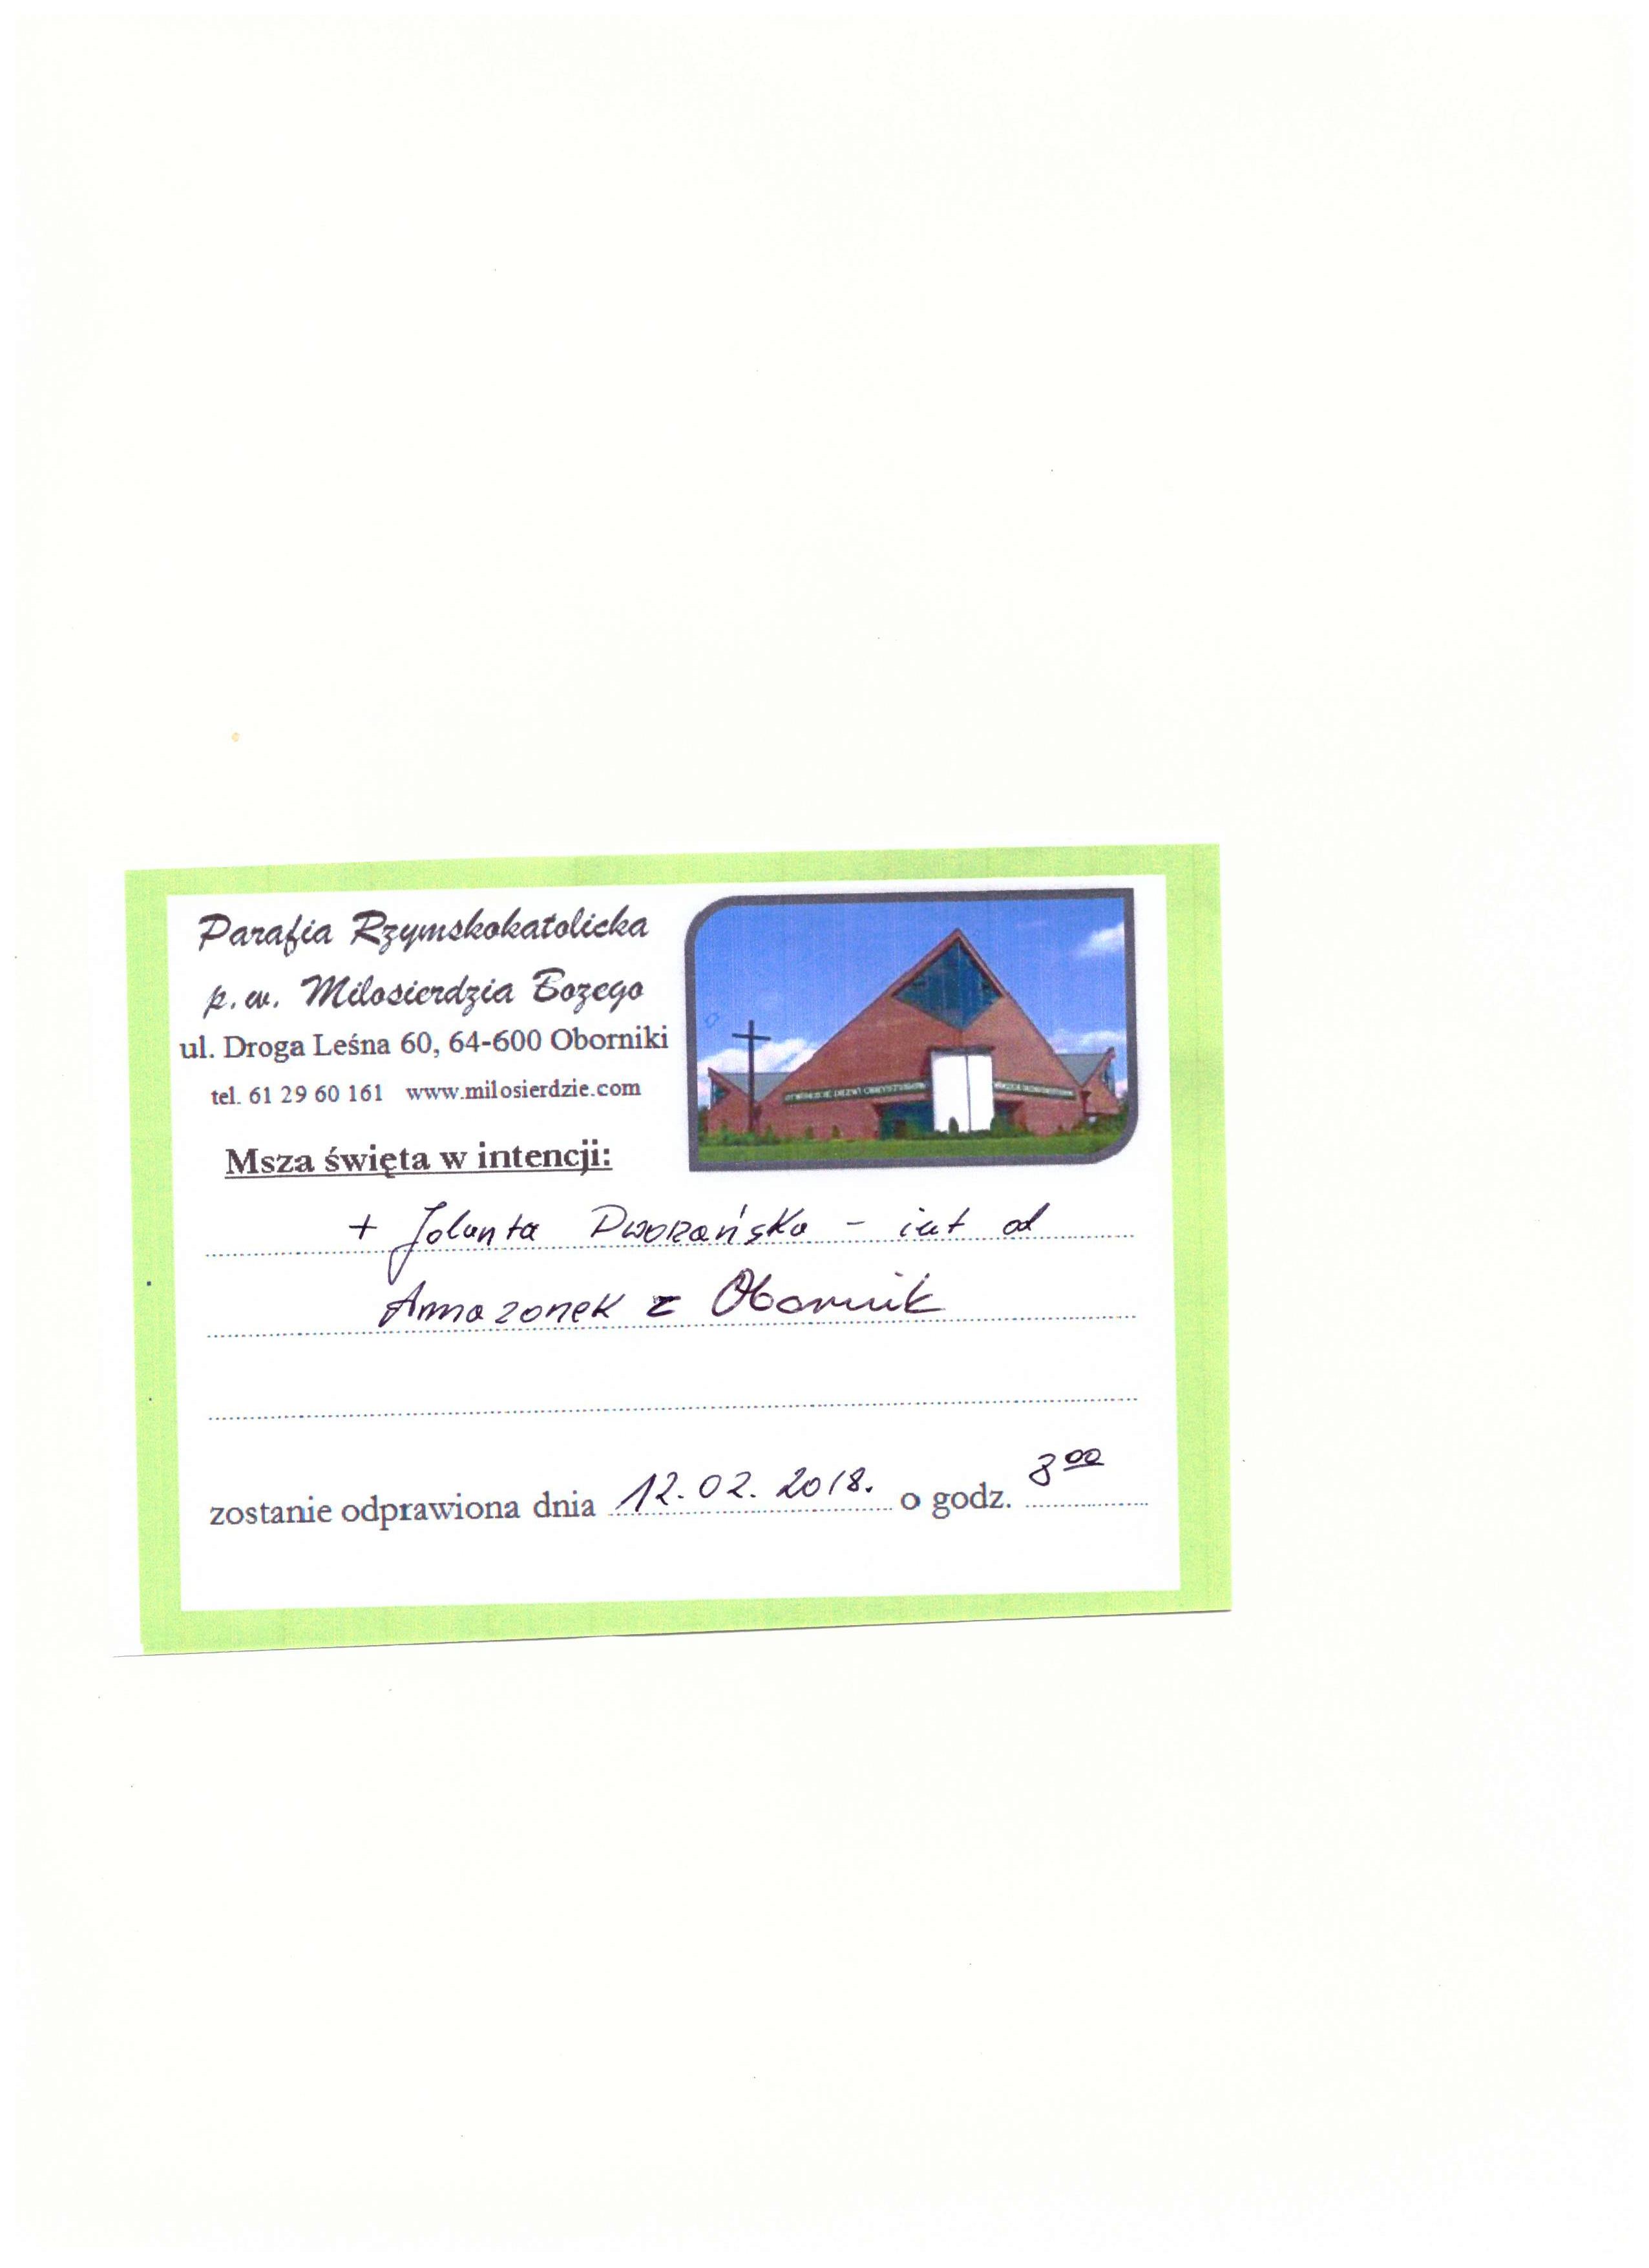 Parafia Rzymskokatolicka
p.w. Milosierdzia Bozego
ul. Droga Leśna 60, 64-600 Oborniki
tel. 61 29 60 161 www.milosierdzie.com
Msza święta w intencji:
+ Jolanta Dworzańska - int od
Amazonek z Obornik
zostanie odprawiona dnia 12.02.2018. o godz. 8 00